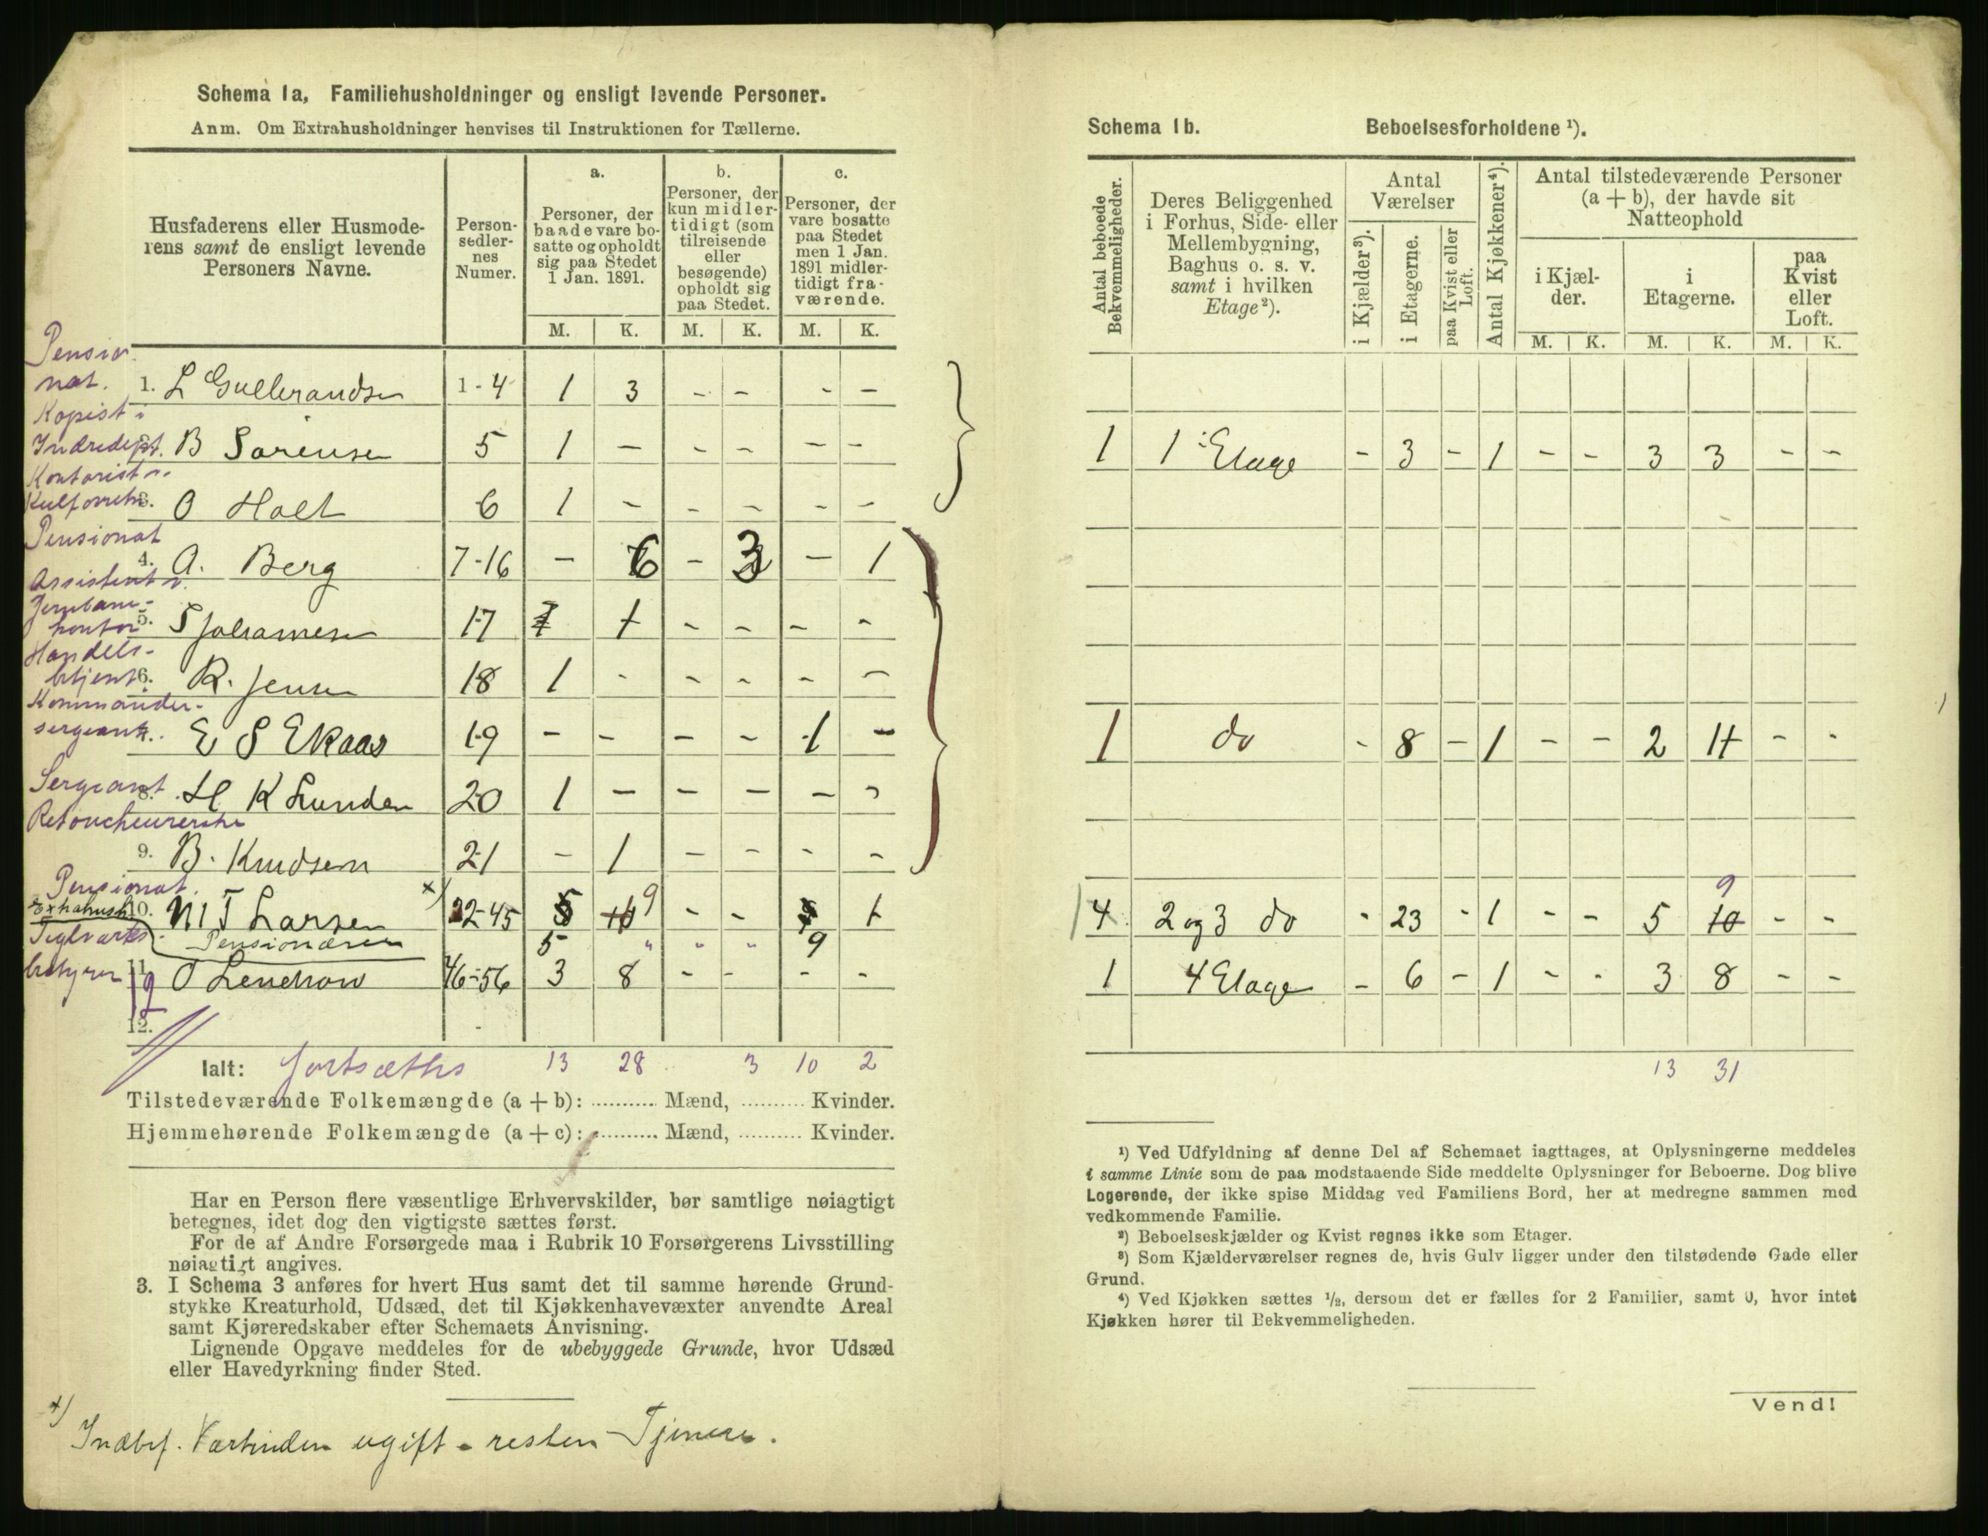 Schema 1a, Familiehusholdninger og ensligt levende Personer.
Anm. Om Extrahusholdninger henvises til Instruktionen for Tællerne.
Husfaderens eller Husmode-
rens samt de ensligt levende
Personers Navne.
Person-
sedler-
nes
Numer.
a.
Personer, der
baade vare bo-
satte og opholdt
sig paa Stedet
1 Jan. 1891.
b.
Personer, der
kun midler-
tidigt (som
tilreisende
eller
besøgende)
opholdt sig
paa Stedet.
c.
Personer, der
vare bosatte
paa Stedet
men 1 Jan.
1891 midler-
tidigt fra-
værende.
M. K. M. K. M. K.
Pensio-
nat. 1. L Gulbrandsen 1-4 1 3 - - - -
Kopist i
Indredept. B Sørensen 5 1 - - - - -
Kontorist v.
3. O Holt 6 1 - - - - -
Pensionat
4. A. Berg 7-16 - 6 - 3 - 1
Assistent v.
Jernbane-
kontor 5. S Johannesen 17 1 1 - - - -
Handels-
betjent 6. R. Jensen 18 1 - - - - -
Kommander-
sergeant 7. E S Ekaas 19 - - - - 1 -
Sergeant 8. H K Lunden 20 1 - - - - -
Retoucheurerske
9. B. Knudsen 21 - 1 - - - -
Pensionat. x) 9
Extrahush. 10. M T Larsen 22-45 5 10 - - 1
Teglværks- Pensionæren 5 " " " 9
bestyrer 11. O Lenchow 46-56 3 8 - - - -
12.
Ialt: fortsættes 13 28 3 10 2
Tilstedeværende Folkemængde (a + b): .......... Mænd, .......... Kvinder.
Hjemmehørende Folkemængde (a + c): .......... Mænd, .......... Kvinder.
Har en Person flere væsentlige Erhvervskilder, bør samtlige nøiagtigt
betegnes, idet dog den vigtigste sættes først.
For de af Andre Forsørgede maa i Rubrik 10 Forsørgerens Livsstilling
nøiagtigt angives.
3. I Schema 3 anføres for hvert Hus samt det til samme hørende Grund-
stykke Kreaturhold, Udsæd, det til Kjøkkenhavevæxter anvendte Areal
samt Kjøreredskaber efter Schemaets Anvisning.
Lignende Opgave meddeles for de ubebyggede Grunde, hvor Udsæd
eller Havedyrkning finder Sted.
x) Indbef. Værtinden ugift - resten Tjenere.
Schema 1b. Beboelsesforholdene ¹).
Antal beboede
Bekvemmeligheder.
Deres Beliggenhed
i Forhus, Side- eller
Mellembygning,
Baghus o. s. v.
samt i hvilken
Etage²).
Antal
Værelser
i Kjælder³).
i Etagerne.
paa Kvist eller
Loft.
Antal Kjøkkener⁴).
Antal tilstedeværende Personer
(a + b), der havde sit
Natteophold
i Kjæl-
der.
i
Etagerne.
paa
Kvist
eller
Loft.
M. K. M. K. M. K.
1 1 Etage - 3 - 1 - - 3 3 - -
1 do - 8 - 1 - - 2 11 - -
9
4 2 og 3 do - 23 - 1 - - 5 10 - -
1 4 Etage - 6 - 1 - - 3 8 - -
13 31
¹) Ved Udfyldning af denne Del af Schemaet iagttages, at Oplysningerne meddeles
i samme Linie som de paa modstaaende Side meddelte Oplysninger for Beboerne. Dog blive
Logerende, der ikke spise Middag ved Familiens Bord, her at medregne sammen med
vedkommende Familie.
²) Beboelseskjælder og Kvist regnes ikke som Etager.
³) Som Kjælderværelser regnes de, hvis Gulv ligger under den tilstødende Gade eller
Grund.
⁴) Ved Kjøkken sættes ½, dersom det er fælles for 2 Familier, samt 0, hvor intet
Kjøkken hører til Bekvemmeligheden.
Vend!